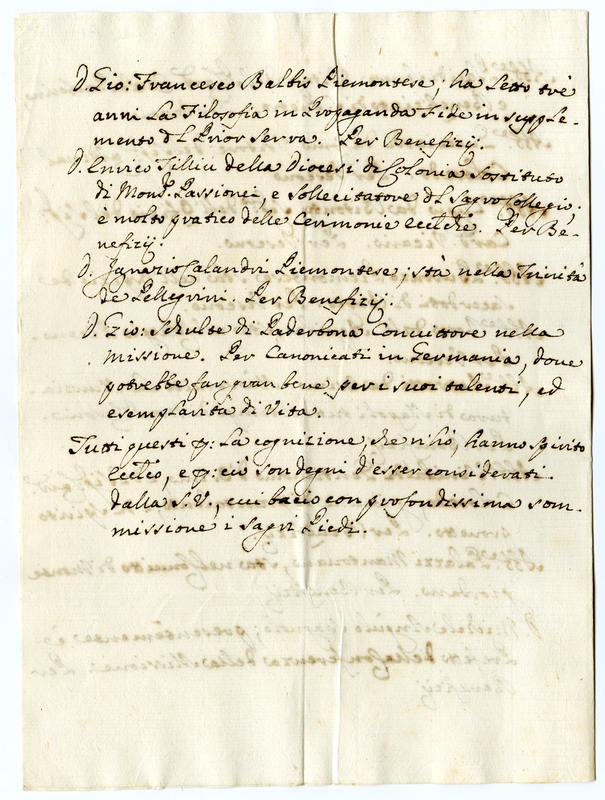 D. Gio: Francesco Balbis Piemontese; ha Letto trè
anni La Filosofia in Propaganda Fide in supple-
mento dl Prior Serra. Per Benefizij.
D. Enrico Tilliu della Diocesi di Colonia sostituto
di Mons.r Passionei, e sollecitatore dl Sagro Collegio;
è molto pratico delle Cerimonie eccl.che. Per Be-
nefizij.
D. Ignazio Calandri Piemontese; stà nella Trinità
de Pellegrini. Per Benefizij.
D. Gio: Schulte di Paderbona Convittore nella
missione. Per Canonicati in Germania, dove
potrebbe far gran bene per i suoi talenti, ed
esemplarità di Vita.
Tutti questi p: La cognizione, che n'hò, hanno spirito
eccl.co, e p: ciò son degni d'esser considerati
dalla S.V., cui bacio con profondissima som-
missione i sagri Piedi.